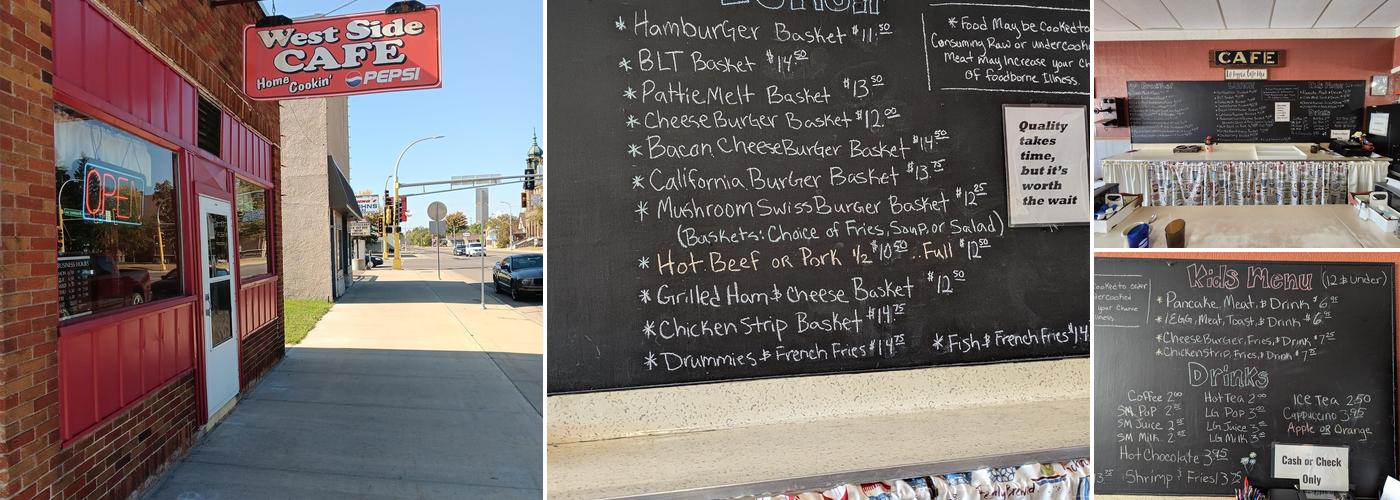 West Side
CAFE
Home Cookin'
PEPSI
OPEN
BUSINESS HOURS
* Hamburger Basket $11.50
* BLT Basket $14.50
* Pattie Melt Basket $13.50
* Cheese Burger Basket $12.00
* Bacon CheeseBurger Basket $14.50
* California Burger Basket $13.75
* Mushroom Swiss Burger Basket $12.25
(Baskets: Choice of Fries, Soup, or Salad)
* Hot Beef or Pork 1/2 $10.50 .. Full $12.50
* Grilled Ham & Cheese Basket $12.50
* Chicken Strip Basket $14.75
* Drummies & French Fries $14.75
* Fish & French Fries $14.
* Food May be Cooked to
Consuming Raw or undercook
meat may Increase your Ch
of foodborne Illness.
Quality
takes
time,
but it's
worth
the wait
CAFE
Kids Menu (12 & under)
* Pancake, Meat, & Drink $6.95
* 1 EGG, Meat, Toast, & Drink $6.95
* Cheese Burger, Fries, & Drink $7.25
* Chicken Strip, Fries, & Drink $7.25
Drinks
Coffee 2.00
Hot Tea 2.00
Ice Tea 2.50
SM Pop 2.25
LG Pop 3.00
Cappuccino 3.95
SM Juice 2.25
LG Juice 3.25
Apple or Orange
SM Milk 2.25
LG Milk 3.25
Hot Chocolate 3.95
Shrimp & Fries 13.75
Cash or Check
Only